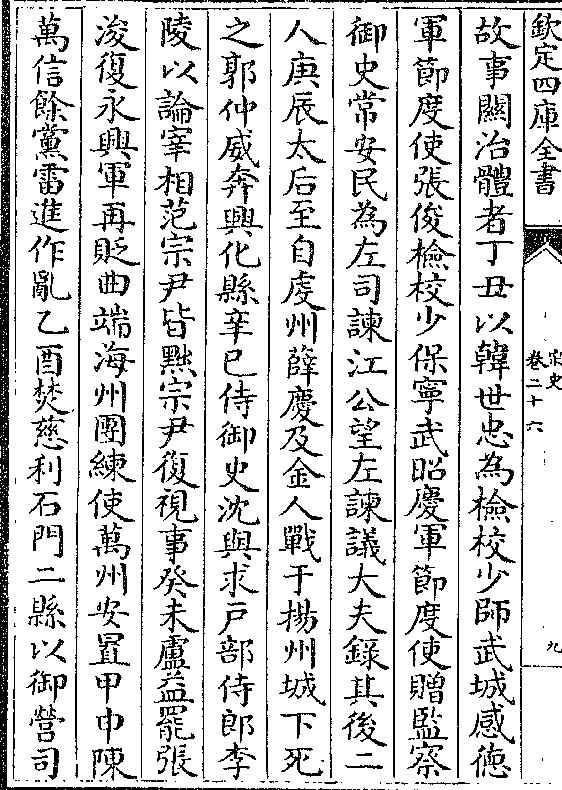 欽定四庫全書
宋史
卷二十六
九
故事關治體者丁丑以韓世忠為檢校少師武城感德
軍節度使張俊檢校少保寧武昭慶軍節度使贈監察
御史常安民為左司諫江公望左諫議大夫錄其後二
人庚辰太后至自虔州薛慶及金人戰于揚州城下死
之郭仲威奔興化縣辛巳侍御史沈與求戶部侍郎李
陵以論宰相范宗尹皆黜宗尹復視事癸未盧益罷張
浚復永興軍再貶曲端海州團練使萬州安置甲申陳
萬信餘黨雷進作亂乙酉焚慈利石門二縣以御營司